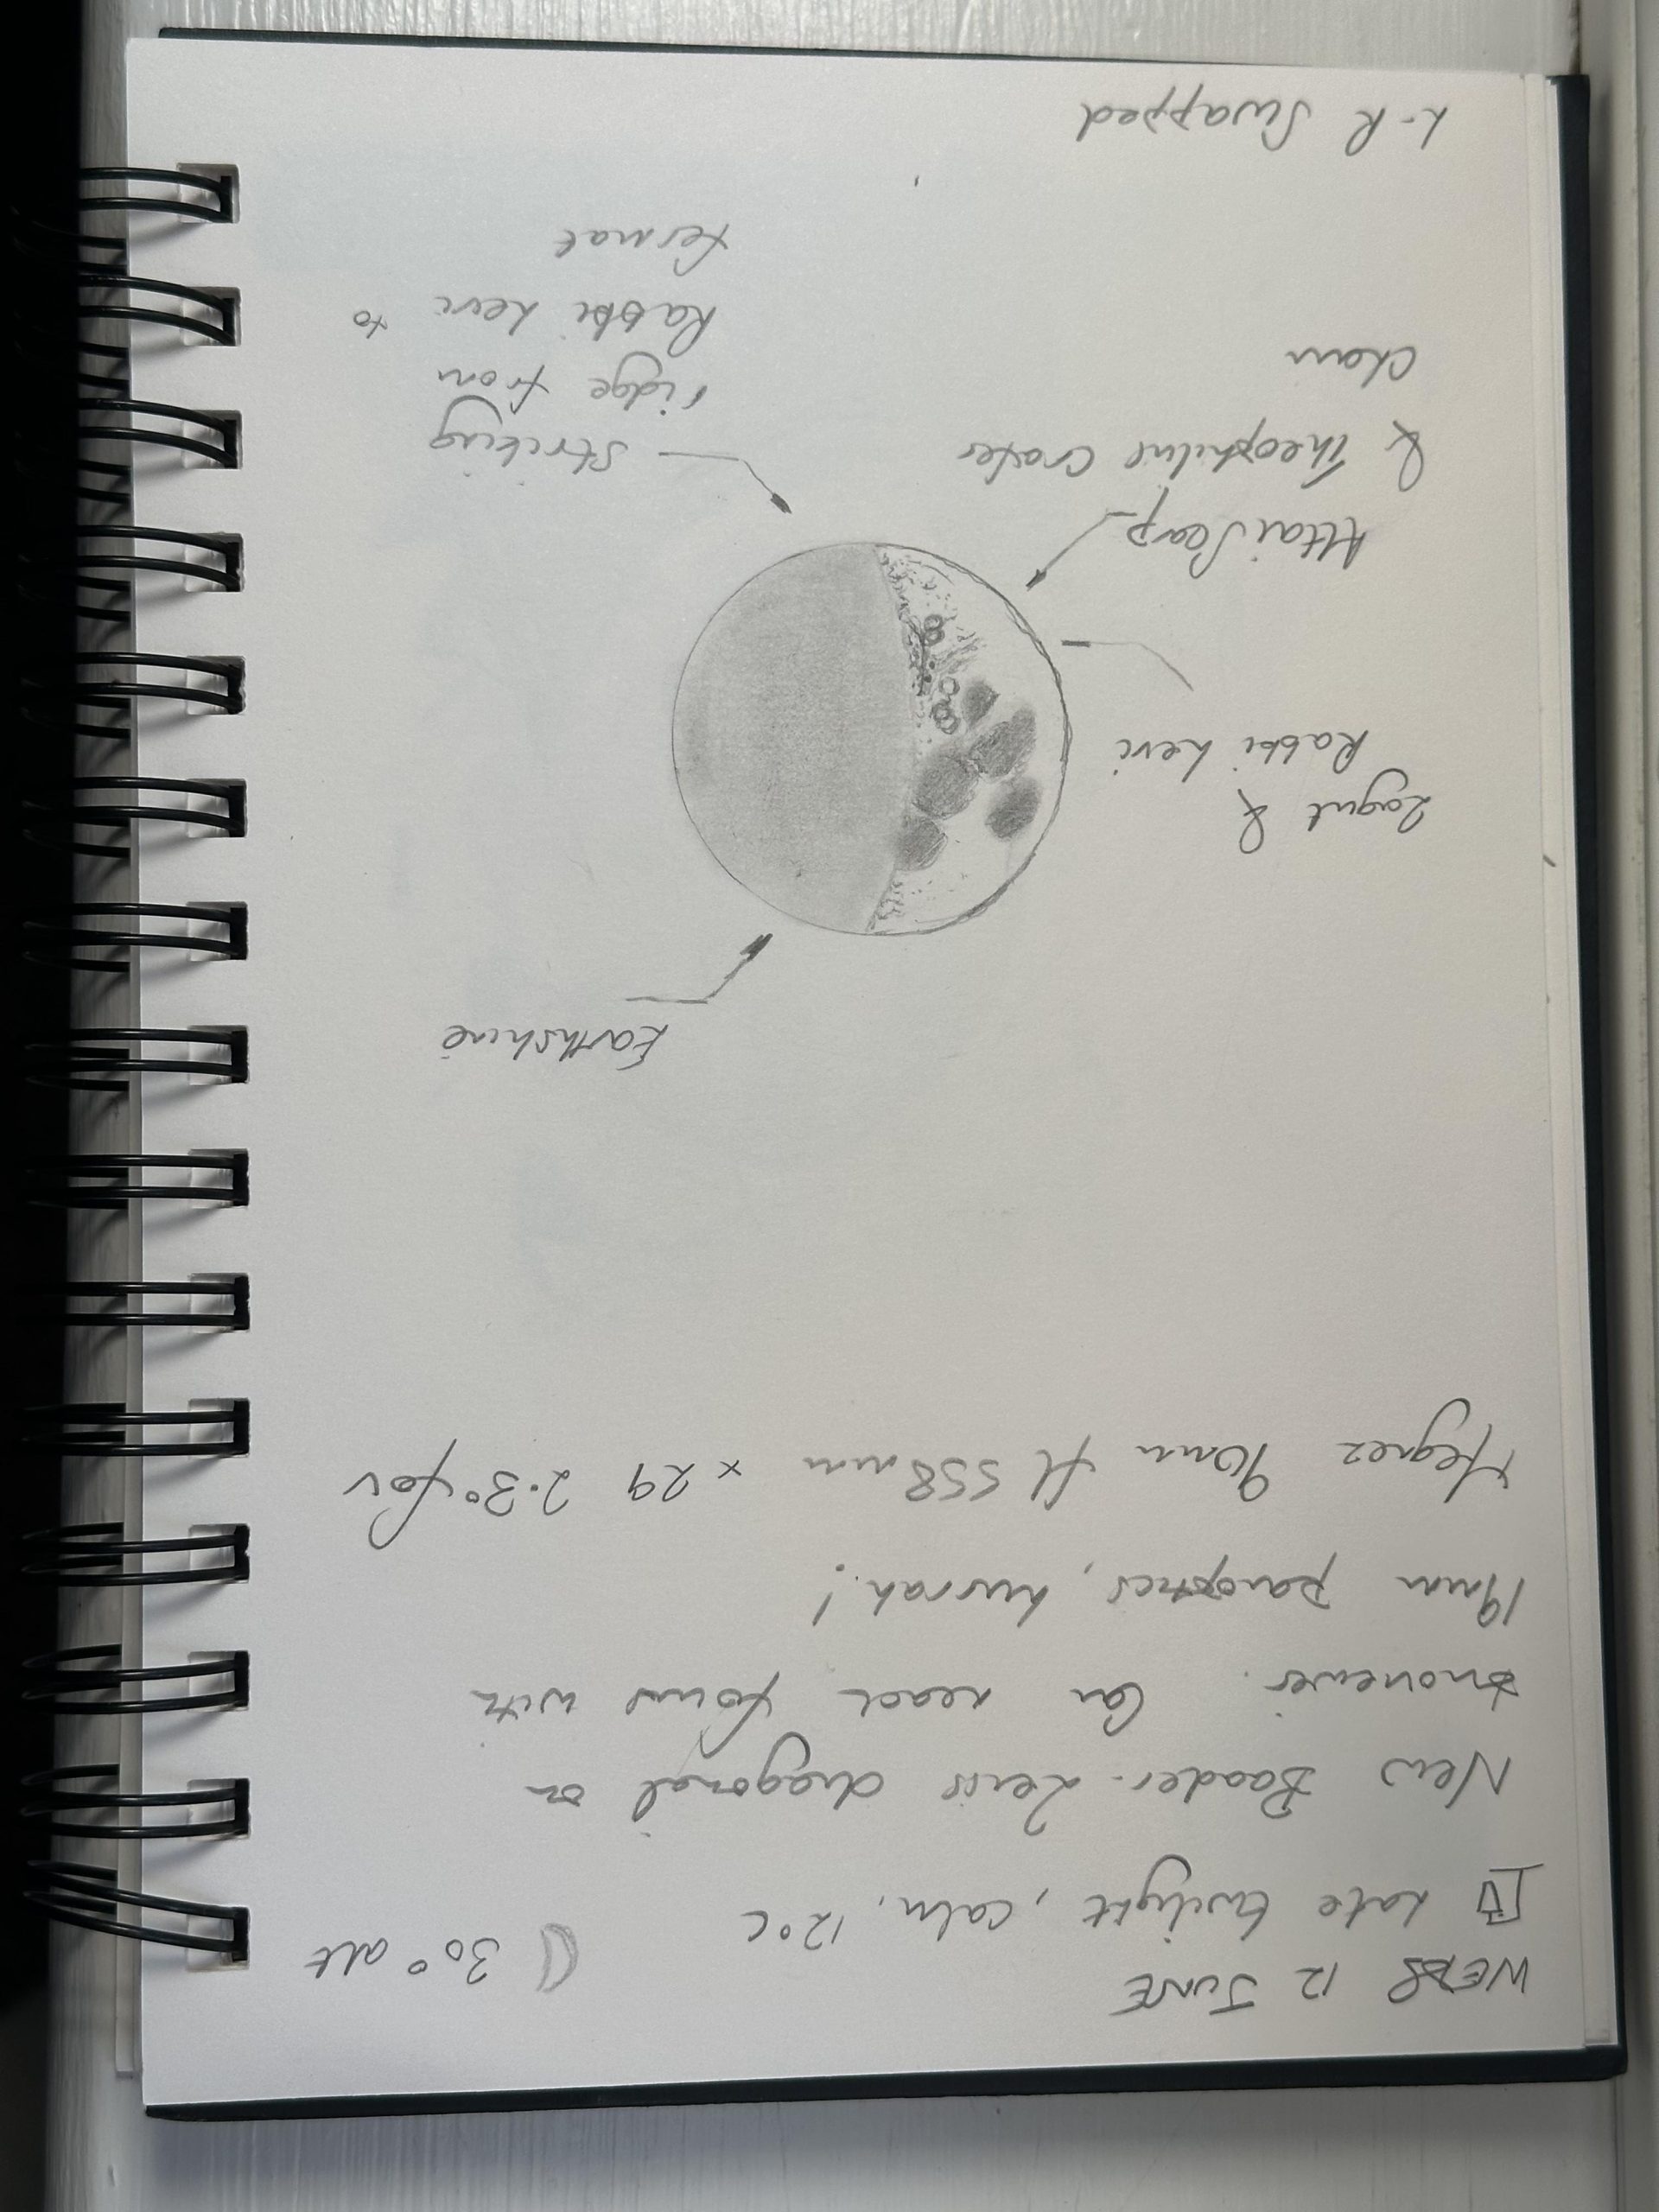 WEDS 12 JUNE
Late twilight, calm, 12°C
30° alt
New Baader-Zeiss diagonal on
bionoviewer. Can reach focus with
19mm panoptics, hurrah!
Megrez 90mm fl 558mm x29 2.3° fov
Earthshine
Zagut &
Rabbi Levi
Altai Scarp
& Theophilus crater
chain
Striking
ridge from
Rabbi Levi to
Fermat
L-R Swapped